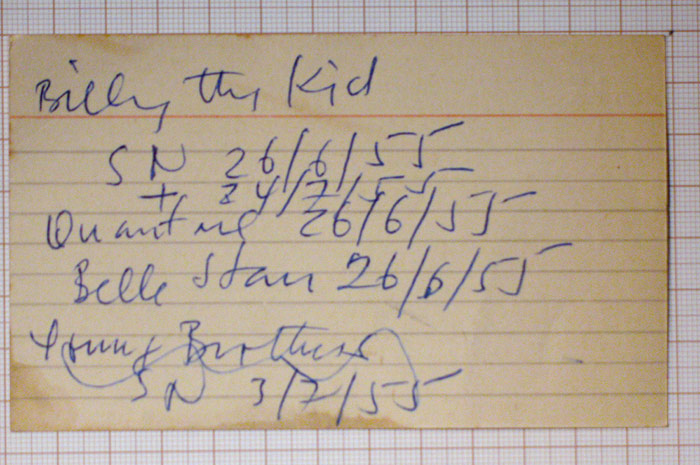 Billy the Kid
SN 26/6/55
+ 24/7/55
Quantrill 26/6/55
Belle Starr 26/6/55
Young Brothers
SN 3/7/55